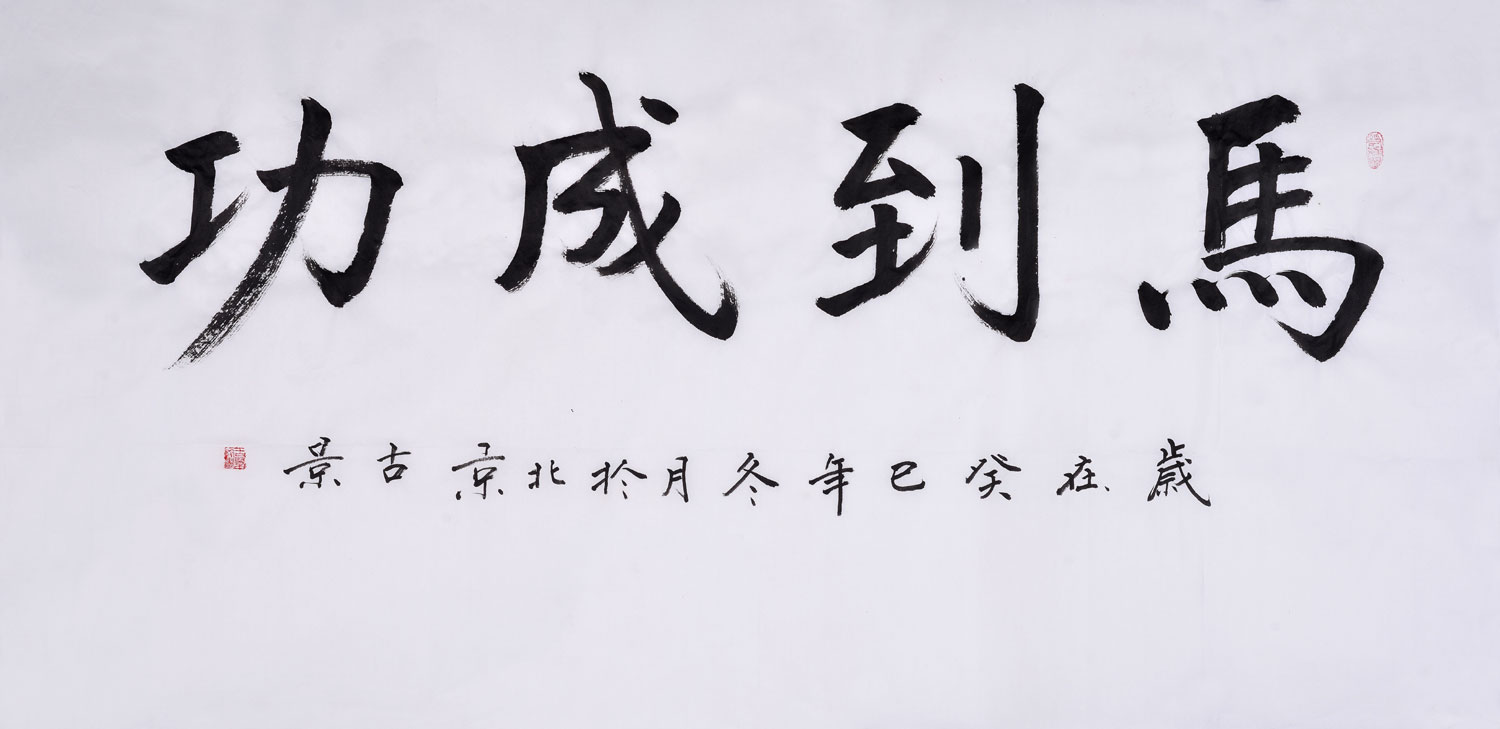 馬到成功
歲在癸巳年冬月於北京古景